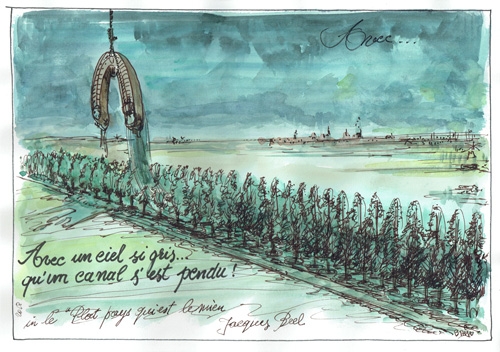 Avec...
Avec un ciel si gris...
qu'un canal s'est pendu !
in le "Plat pays qui est le mien
Jacques Brel